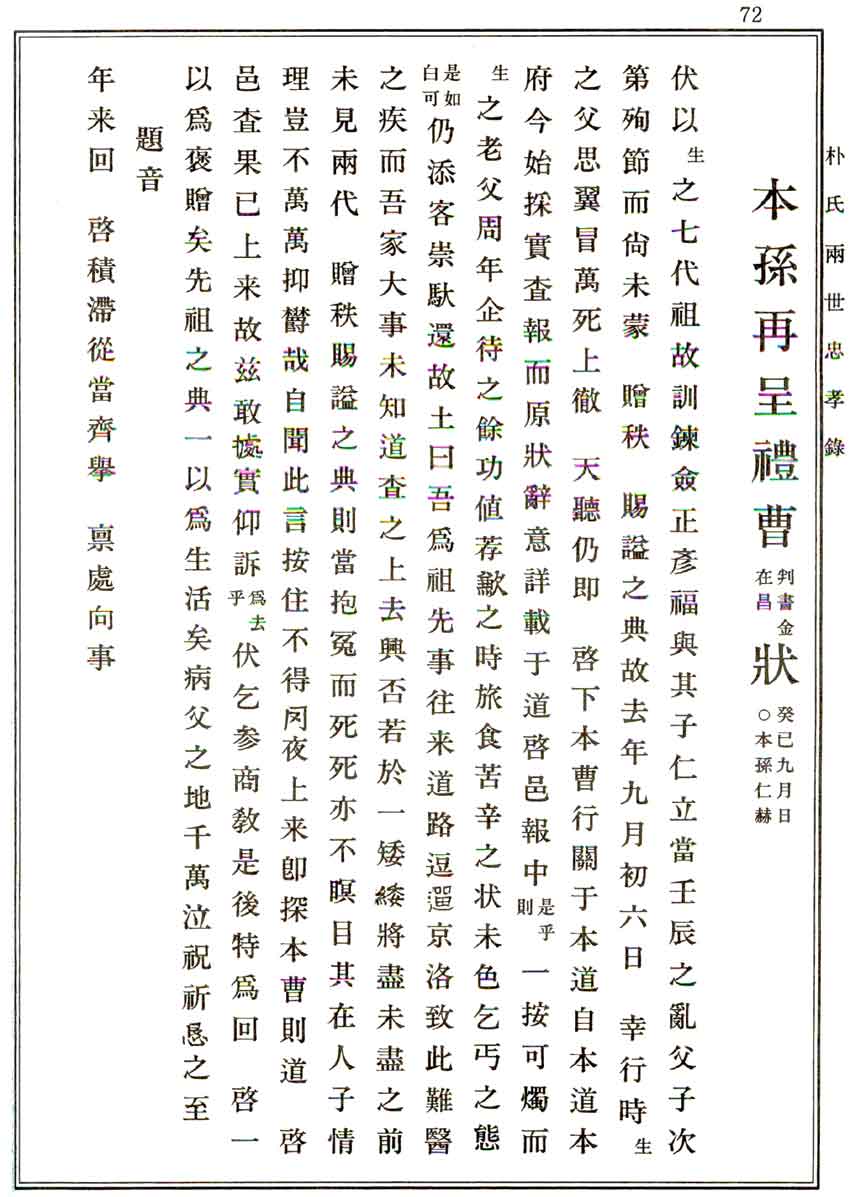 72
朴氏兩世忠孝錄
本孫再呈禮曹判書金在昌狀癸巳九月日○本孫仁赫
伏以生之七代祖故訓鍊僉正彥福與其子仁立當壬辰之亂父子次
第殉節而尙未蒙 贈秩 賜謚之典故去年九月初六日 幸行時生
之父思翼冒萬死上徹 天聽仍即 啓下本曹行關于本道自本道本
府今始採實査報而原狀辭意詳載于道啓邑報中是乎則一按可燭而
生之老父周年企待之餘功値荐歉之時旅食苦辛之状未色乞丐之態
是如白可仍添客祟馱還故土曰吾爲祖先事往来道路逗遛京洛致此難醫
之疾而吾家大事未知道査之上去興否若於一矮緌將盡未盡之前
未見兩代 贈秩賜謚之典則當抱冤而死死亦不瞑目其在人子情
理豈不萬萬抑欝哉自聞此言按住不得罔夜上来卽探本曹則道 啓
邑査果已上来故兹敢據實仰訴爲去乎伏乞参商教是後特爲回 啓一
以爲褒贈矣先祖之典一以爲生活矣病父之地千萬泣祝祈恳之至
題音
年来回 啓積滯從當齊擧 禀處向事